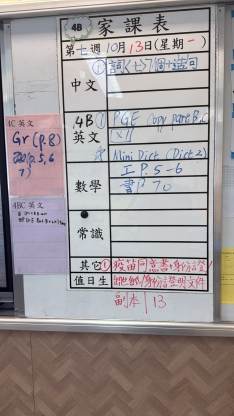 4B 家課表
第七週10月13日(星期一)
中文
① 詞(七)7個+造句
4B
英文
① PGE Copy part B, C
(x7)
Mini Dict (Dict 2)
數學
工 P.5-6
書 P 70
常識
其它
① 疫苗同意書+身份證
值日生
身份證明文件
副本 | 13
4C 英文
Gr (p.8)
5, 6
7)
4BC 英文